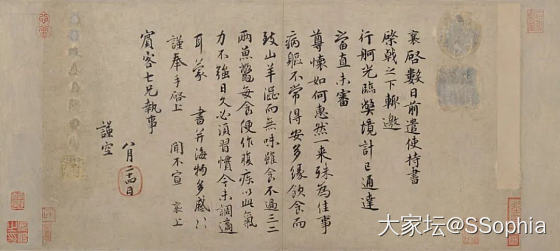 襄啓數日前遣使持書
啓戟之下輒邀
行舸光臨弊境計已通達
當直未審
尊懷如何惠然一來殊為佳事
病軀不常得安多緣飲食而
致山羊澀而無味雖食不過三二
兩魚鱉每食便作腹疾以此氣
力不強日久必須習慣今未調適
耳蒙 書并海物多感
謹奉手啓上 聞不宣 襄上
賓客七兄執事
八月二四日
謹空
大家坛@SSophia